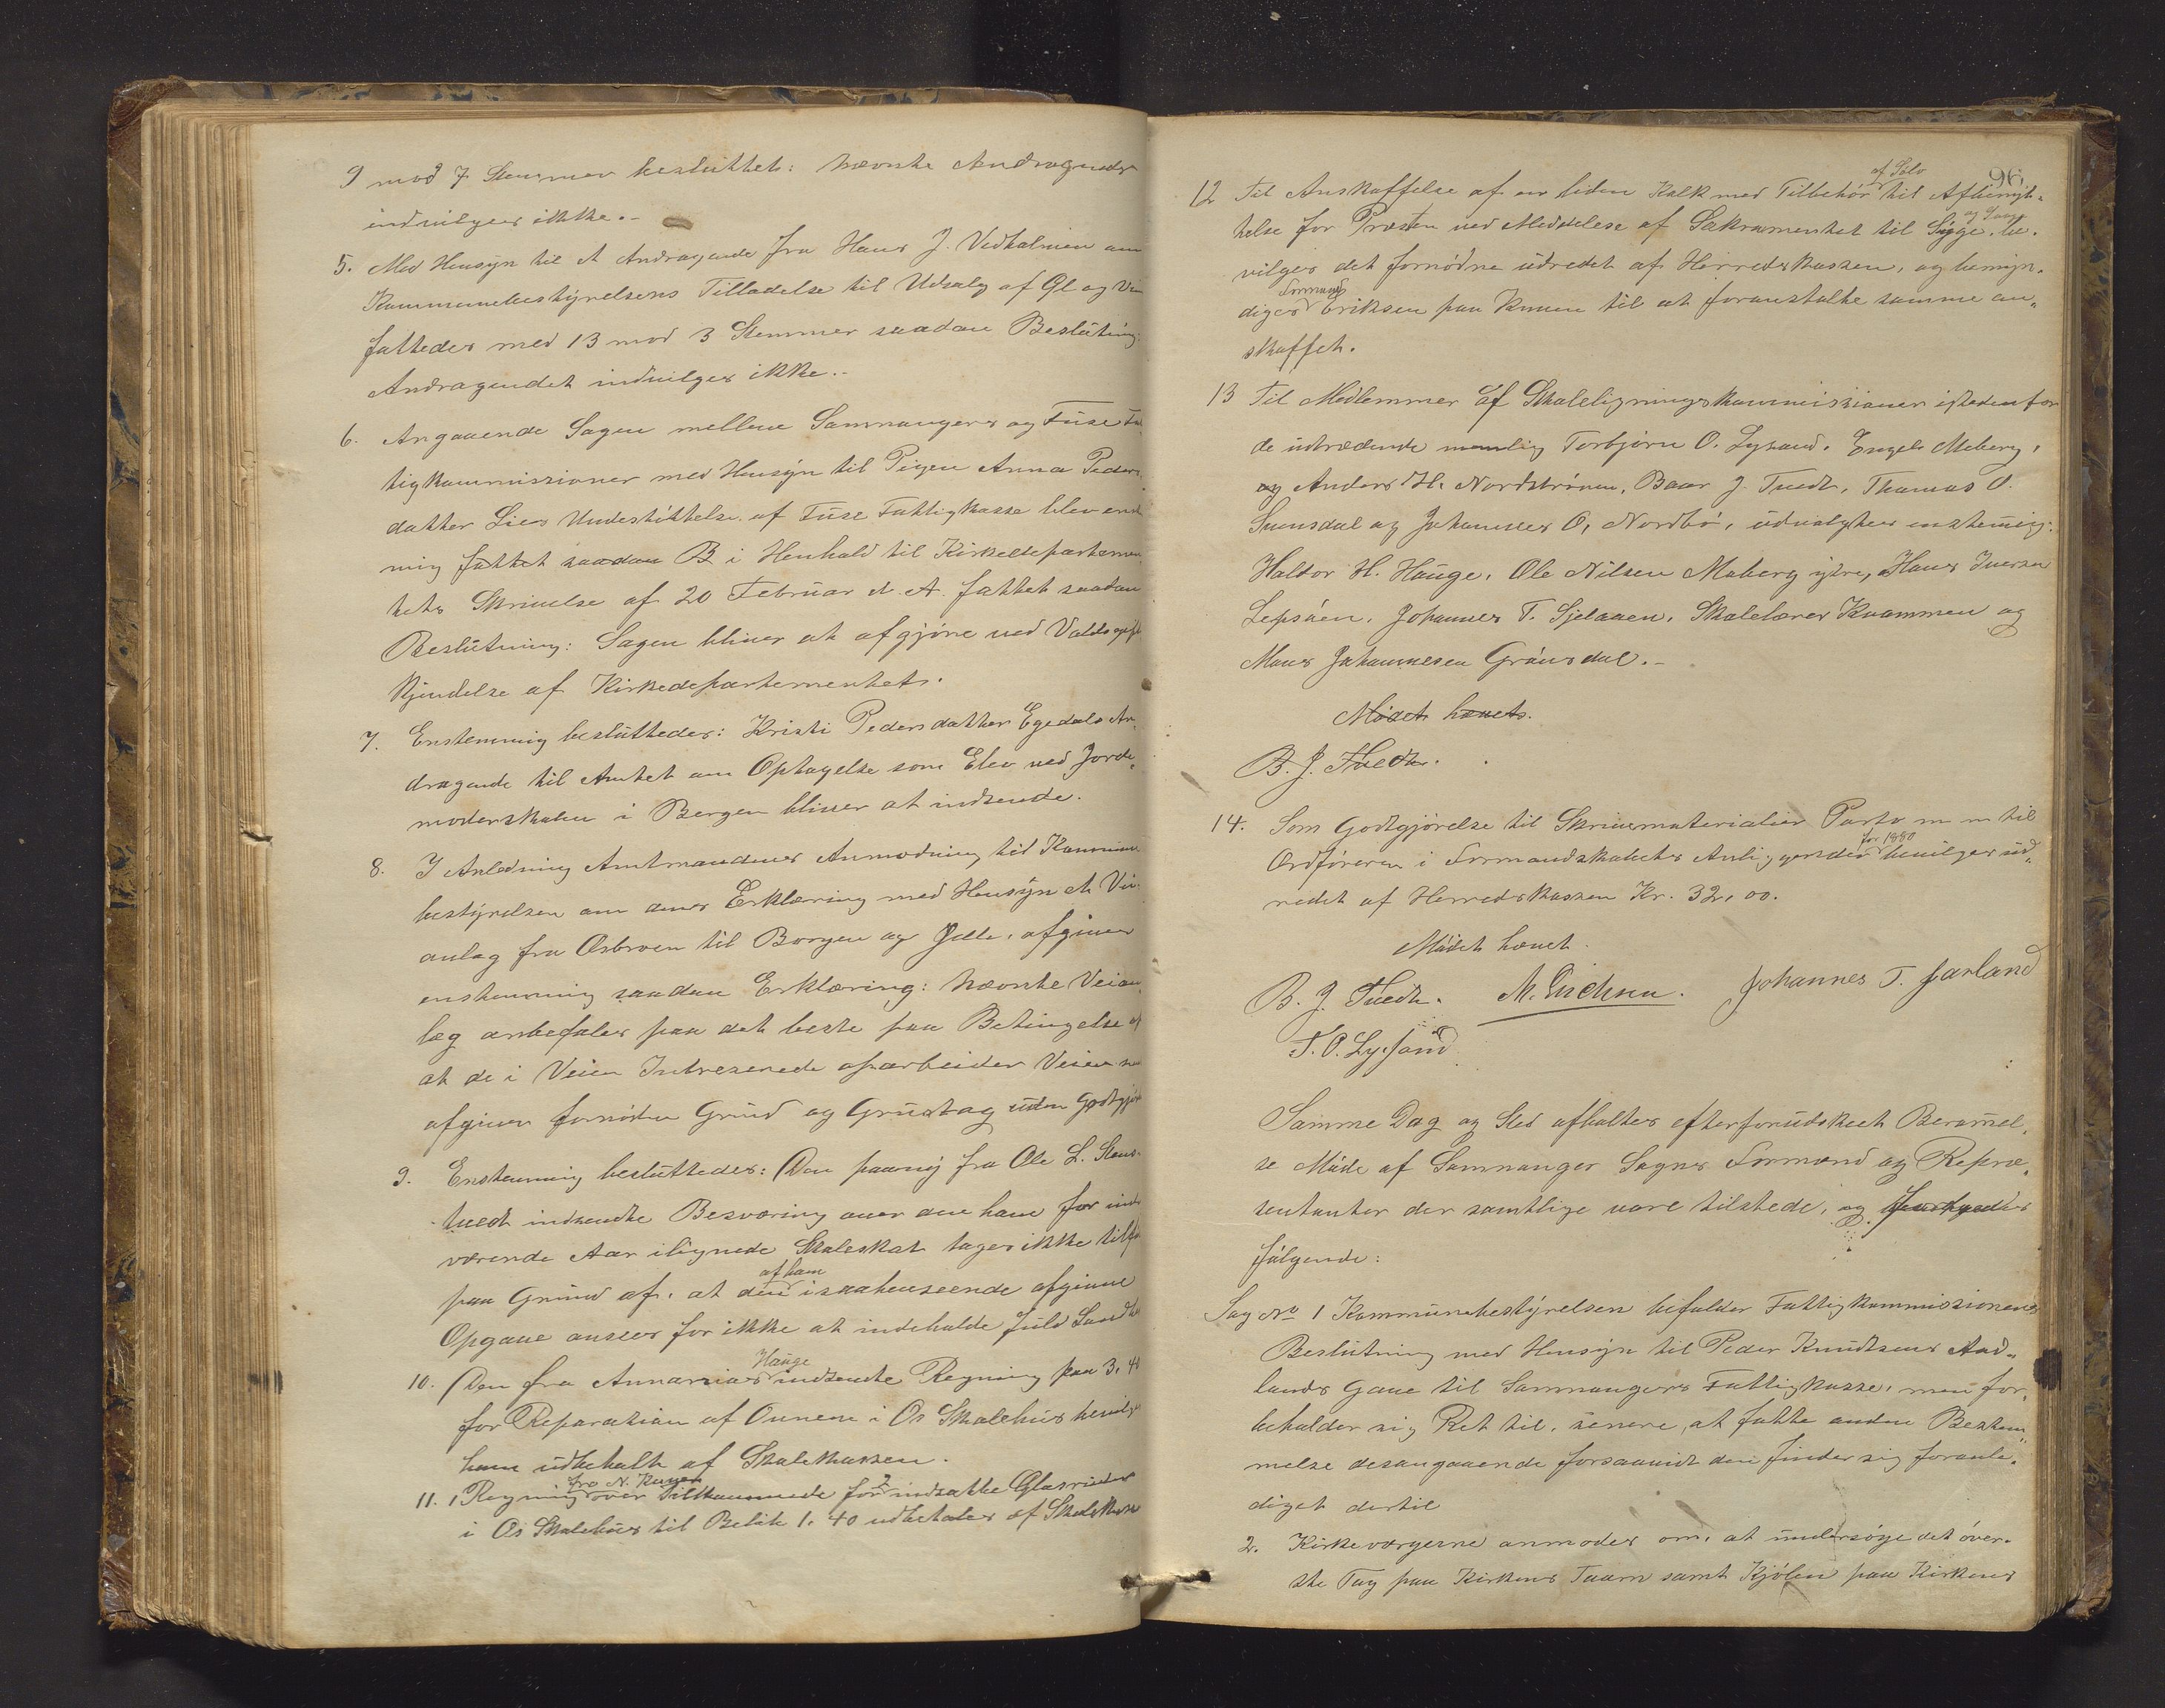 9 mod 7 Stemmer besluttet: nævnte Andragende
indvilges ikke.-
5. Med Hensyn til et Andragende fra Hans J. Vedholmen om
Kommunebestyrelsens Tilladelse til Udsalg af Øl og Vin
fattedes med 13 mod 3 Stemmer saadan Beslutning:
Andragendet indvilges ikke.-
6. Angaaende Sagen mellem Samnangers og Fuse Fat-
tigkommissioner med Hensyn til Pigen Anna Peders-
datter Lies Understøttelse af Fuse Fattigkasse blev enstem-
mig fattet saadan B i Henhold til Kirkedepartemen-
tets Skrivelse af 20 Februar d. A. fattet saadan
Beslutning: Sagen bliver at afgjøre ved Voldsgifts
Kjendelse af Kirkedepartementet.
7. Enstemmig besluttedes: Kristi Pedersdatter Egedals An-
dragende til Amtet om Optagelse som Elev ved Jorde-
moderskolen i Bergen bliver at indsende.
8. I Anledning Amtmandens Anmodning til Kommune-
bestyrelsen om dens Erklæring med Hensyn et Vei-
anlæg fra Osbroen til Borgen og Ydle, afgives
enstemmig saadan Erklæring: nævnte Veian-
læg anbefales paa det beste paa Betingelse af
at de i Veien Interesserede oparbeider Veien samt
afgiver fornøden Grund og Grustag uden Godtgjørelse
9. Enstemmig besluttedes: Den paany fra Ole L. Stens-
tvedt indsendte Besværing over den ham for inde-
værende Aar ilignede Skoleskat tages ikke tilfølge
paa Grund af, at den af ham i saahenseende afgivne
Opgave ansees for ikke at indeholde fuld Sandhed
10. Den fra Annanias Hauge indsendte Regning paa 3,40
for Reparasion af Ovnene i Os Skolehus bevilges
ham udbetalt af Skolekassen.
11. Regning fra N. Kuven over Tilkommende for 2 indsatte Glasruder
i Os Skolehus til Beløb 1,40 udbetales af Skolekassen
96
12 Til Anskaffelse af en liden Kalk med Tilbehør af Sølv til Afbenyt-
telse for Præsten ved Meddelelse af Sakramentet til Syge, be-
vilges det fornødne udredet af Herredskassen, og bemyn-
diges Formand Eriksen paa Kuven til at foranstalte samme an-
skaffet.
13 Til Medlemmer af Skoleligningskommissionen istedenfor
de udtrædende nemlig Torbjørn O. Lysand, Engel Moberg,
og Anders H. Nordstrønen, Baar J. Tvedt, Thomas O.
Svensdal og Johannes O, Nordbø, udvalgtes enstemmig:
Haldor H. Hauge, Ole Nilsen Moberg ytre, Hans Iversen
Lepsøen, Johannes T. Gjelaaen, Skolelærer Kvammen og
Mons Johannesen Grønsdal.-
Mødet hævet.
B. J. Tvedt.
14. Som Godtgjørelse til Skrivematerialier Porto m m til
Ordføreren i Formandskabets Anliggender for 1880 bevilges ud-
redet af Herredskassen Kr. 32,00.
Mødet hævet.
B. J. Tvedt. M. Erichsen. Johannes T. Jarland
T. O. Lysand
Samme Dag og Sted afholdtes efter forudskeet Berammel-
se Møde af Samnanger Sogns Formænd og Repræ-
sentanter der samtlige vare tilstede, og
følgende:
Sag No 1 Kommunebestyrelsen bifalder Fattigkommissionens
Beslutning med Hensyn til Peder Knudtsens Aad-
lands Gave til Samnangers Fattigkasse, men for-
beholder sig Ret til, senere, at fatte anden Bestem-
melse desangaaende forsaavidt den finder sig foranle-
diget dertil
2. Kirkeværgerne anmodes om, at undersøge det øver-
ste Tag paa Kirkens Taarn samt Kjølen paa Kirkens